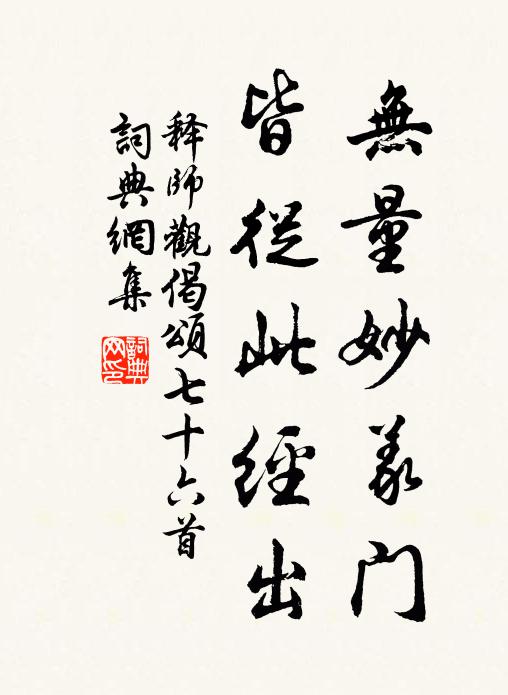 無量妙義門
皆從此經出
释師觀偈頌七十六首
詞典網集
詞典
网印